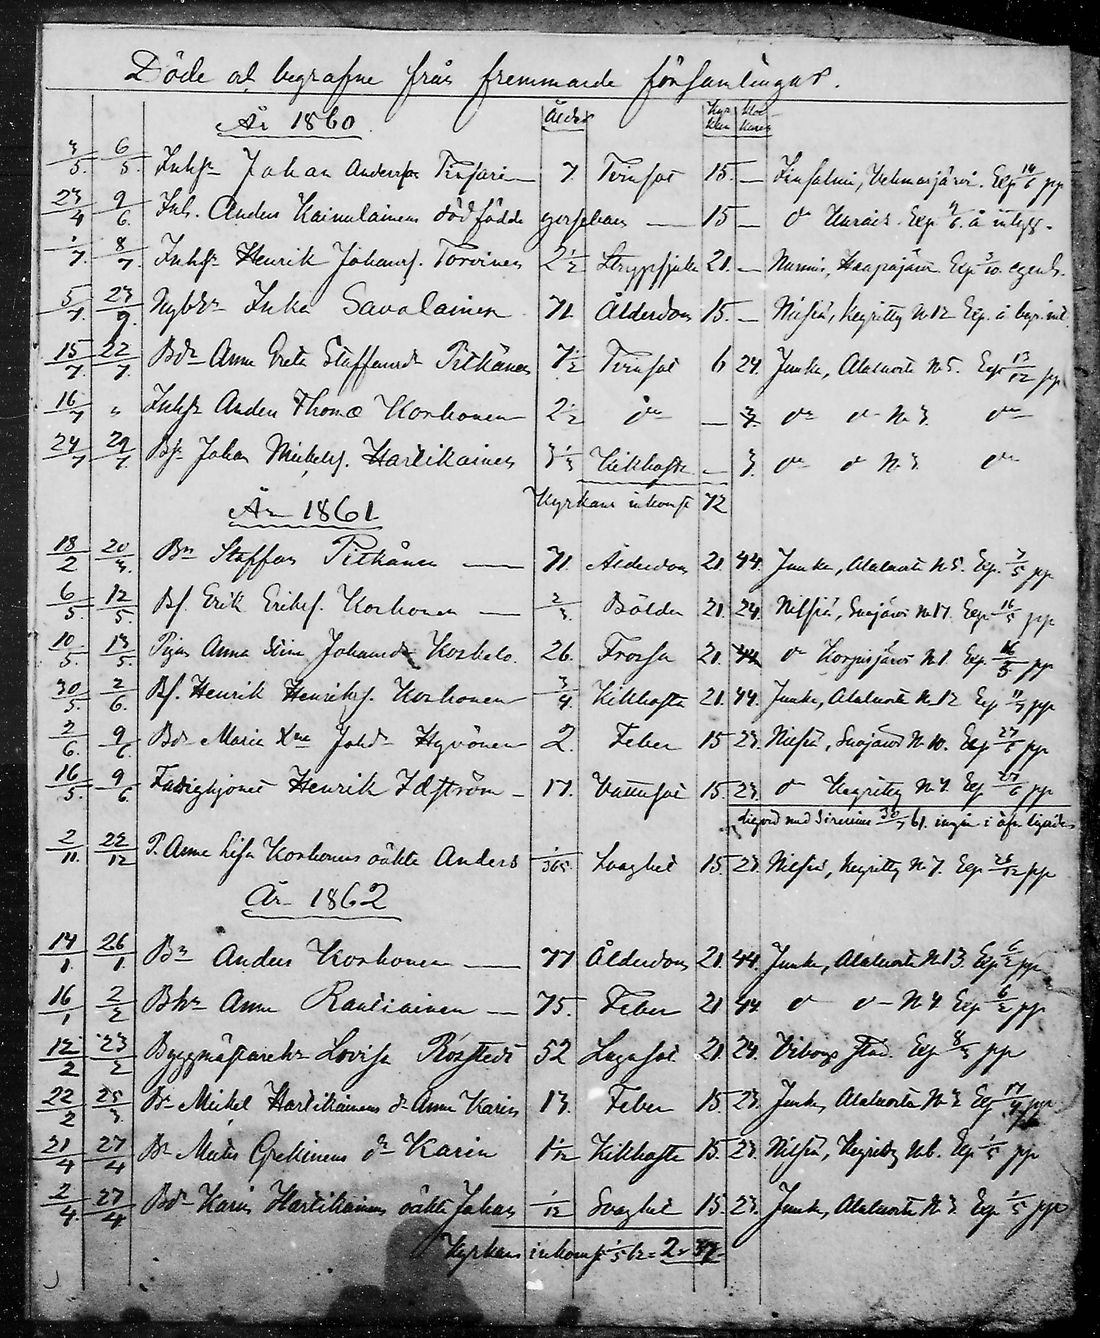 Döde och begrafne från fremmande församlingar.
År 1860 Ålder Kyrkan Klockaren
3/5. 6/5. Inhs. Johan Andersson 7 Tvinsot 15. — Exp 14/6 pp
23/4 9/6. Inh. Anders Kainulainens dödfödde gossebarn — 15 —
1/7. 8/7. Inhs. Henrik Johanss. Torvinen 2 1/2 Strypsjuka 21. — Nurmis, Haapajärvi Exp
5/7. 23/9. Nybds Inka Savolainen 71 Ålderdom 15. — Nilsiä, Keyritty No 12 Exp.
15/7 22/7. Bdr Anna Greta Staffansd. Pitkänen 7 1/2 Tvinsot 6 24. Juuka, Alaluosta No 5. Exp 13/12 pp
16/7 " Inhs Anders Thomæ Korhonen 2 1/2 do — 3. do do No 3. do
24/7 29/7. Bs. Johan Mickelss. Hartikainen 3 1/3 Kikhosta — 3. do do No 3 do
Kyrkans inkomst 72
År 1861
18/2 20/3. Bn Staffan Pitkänen — 71. Ålderdom 21. 44. Juuka, Alaluosta No 5. Exp. 7/5 pp
6/5. 12/5. Bs. Erik Erikss. Korhonen — 2/3 Bölder 21. 24. Nilsiä, Suojärvi No 17. Exp 16/5 pp
10/5. 13/5. Pigan Anna Johansdr Koskelo. 26. Frossa 21. 44. do Korpisjärvi No 1. Exp. 16/5 pp
30/5. 2/6. Bs. Henrik Henrikss. Korhonen 3/4 Kikhosta 21. 44. Juuka, Alaluosta No 12 Exp pp
2/6. 9/6 Bdr Maria Xna Johdr Hyvönen 2. Feber 15 23. Nilsiä, Suojärvi No 10. Exp 27/6 pp
16/5. 9/6. Fattighjonet Henrik Idström — 17. Vattusot 15. 23. do Keyritty No 4. Exp 27/6 pp
61. ingår i
2/11. 22/12 P. Anna Lisa Korhonens oäkta Anders 1/365 Svaghet 15. 23. Nilsiä, Keyritty No 7. Exp 28/12 pp
År 1862
14/1. 26/1. Bn Anders Korhonen — 77 Ålderdom 21. 44. Juuka, Alaluosta No 13. Exp 6/2 pp
16/1 2/2 Bhr Anna Rautiainen — 75. Feber 21 44 do do No 4 Exp 6/2 pp
12/2 23/2 Byggmästarehr Lovisa Rosstedt 52 Lungsot 21. 24. Viborgs stad. Exp 8/3 pp
22/2 25/3. Bn Mickel Hartikainens dr Anna Karin 13. Feber 15. 23. Juuka, Alaluosta No 3 Exp 17/4 pp
21/4 27/4 Bn Mats Grekinens dr Karin 1 1/12 Kikhosta 15. 23. Nilsiä, Keyritty No 6. Exp 1/5 pp
2/4. 27/4 Bdr Karin Hartikainens oäkta Johan 1/12 Svaghet 15. 23. Juuka, Alaluosta No 3 Exp 1/5 pp
Kyrkans inkomst 1/5 62 = 2. 37.